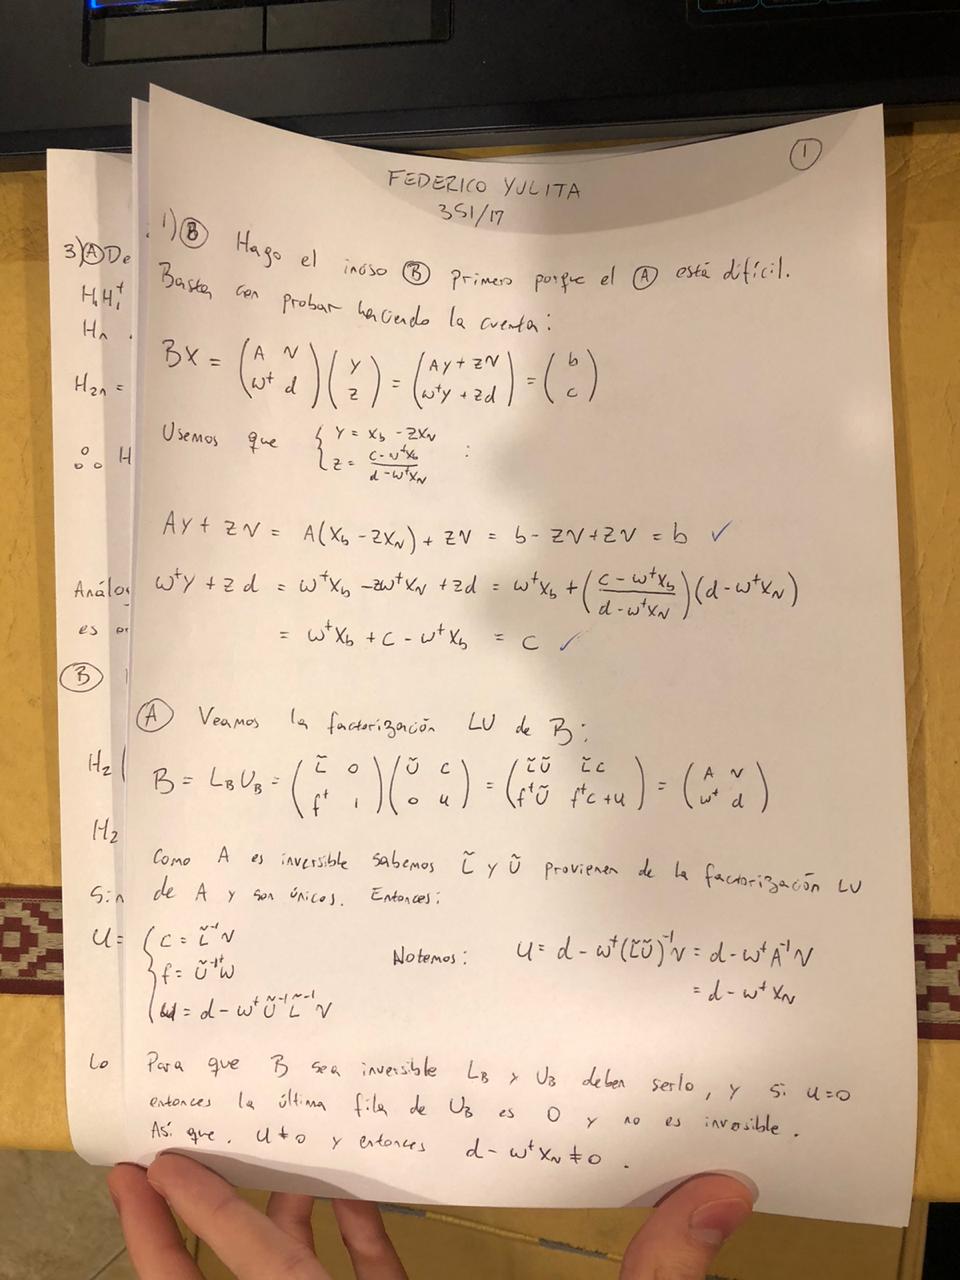 1
FEDERICO YULITA
351/17
1) B Hago el inciso B primero porque el A está difícil.
Basta con probar haciendo la cuenta:
BX = (A v ; w^t d)(y ; z) = (Ay + zv ; w^t y + zd) = (b ; c)
Usemos que { y = x_b - z x_v ; z = (c - w^t x_b)/(d - w^t x_v) :
Ay + zv = A(x_b - z x_v) + zv = b - zv + zv = b ✓
w^t y + zd = w^t x_b - z w^t x_v + zd = w^t x_b + ((c - w^t x_b)/(d - w^t x_v))(d - w^t x_v)
= w^t x_b + c - w^t x_b = c ✓
A Veamos la factorización LU de B:
B = L_B U_B = (L̃ 0 ; f^t 1)(Ũ c ; 0 u) = (L̃Ũ L̃c ; f^tŨ f^tc + u) = (A v ; w^t d)
Como A es inversible sabemos L̃ y Ũ provienen de la factorización LU
de A y son únicos. Entonces:
{ c = L̃^-1 v
f = Ũ^-1t w
u = d - w^t Ũ^-1 L̃^-1 v
Notemos: u = d - w^t (L̃Ũ)^-1 v = d - w^t A^-1 v
= d - w^t x_v
Para que B sea inversible L_B y U_B deben serlo, y si u=0
entonces la última fila de U_B es 0 y no es inversible.
Así que. u ≠ 0 y entonces d - w^t x_v ≠ 0.
3) A De
H_1 H_1^t
H_n
H_2n =
∴ H
Análo
es
B
H_2 (
H_2
Sin
U =
Lo